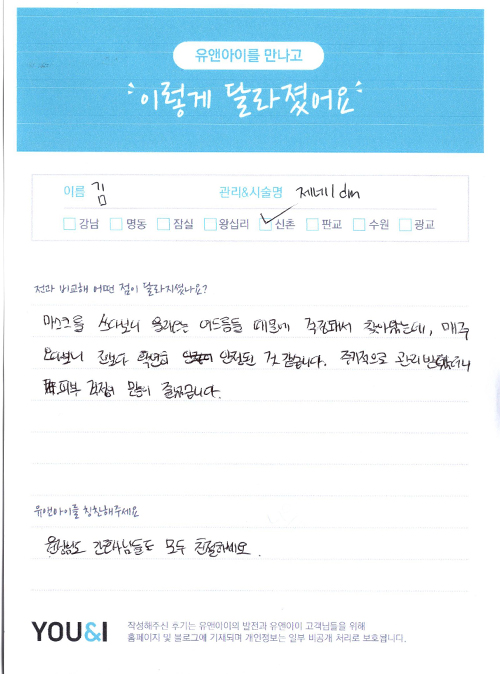 유앤아이를 만나고
이렇게 달라졌어요
이름 김 관리&시술명 제네 / dm
강남 명동 잠실 왕십리 신촌 판교 수원 광교
전과 비교해 어떤 점이 달라지셨나요?
마스크를 쓰다보니 올라오는 여드름들 때문에 걱정돼서 찾아왔는데, 매주
오다보니 전보다 확연히 안정된 것 같습니다. 주기적으로 관리받았더니
피부 걱정이 많이 줄었습니다.
유앤아이를 칭찬해주세요
원장님도 간호사님들도 모두 친절하세요.
YOU&I
작성해주신 후기는 유앤아이의 발전과 유앤아이 고객님들을 위해
홈페이지 및 블로그에 기재되며 개인정보는 일부 비공개 처리로 보호됩니다.